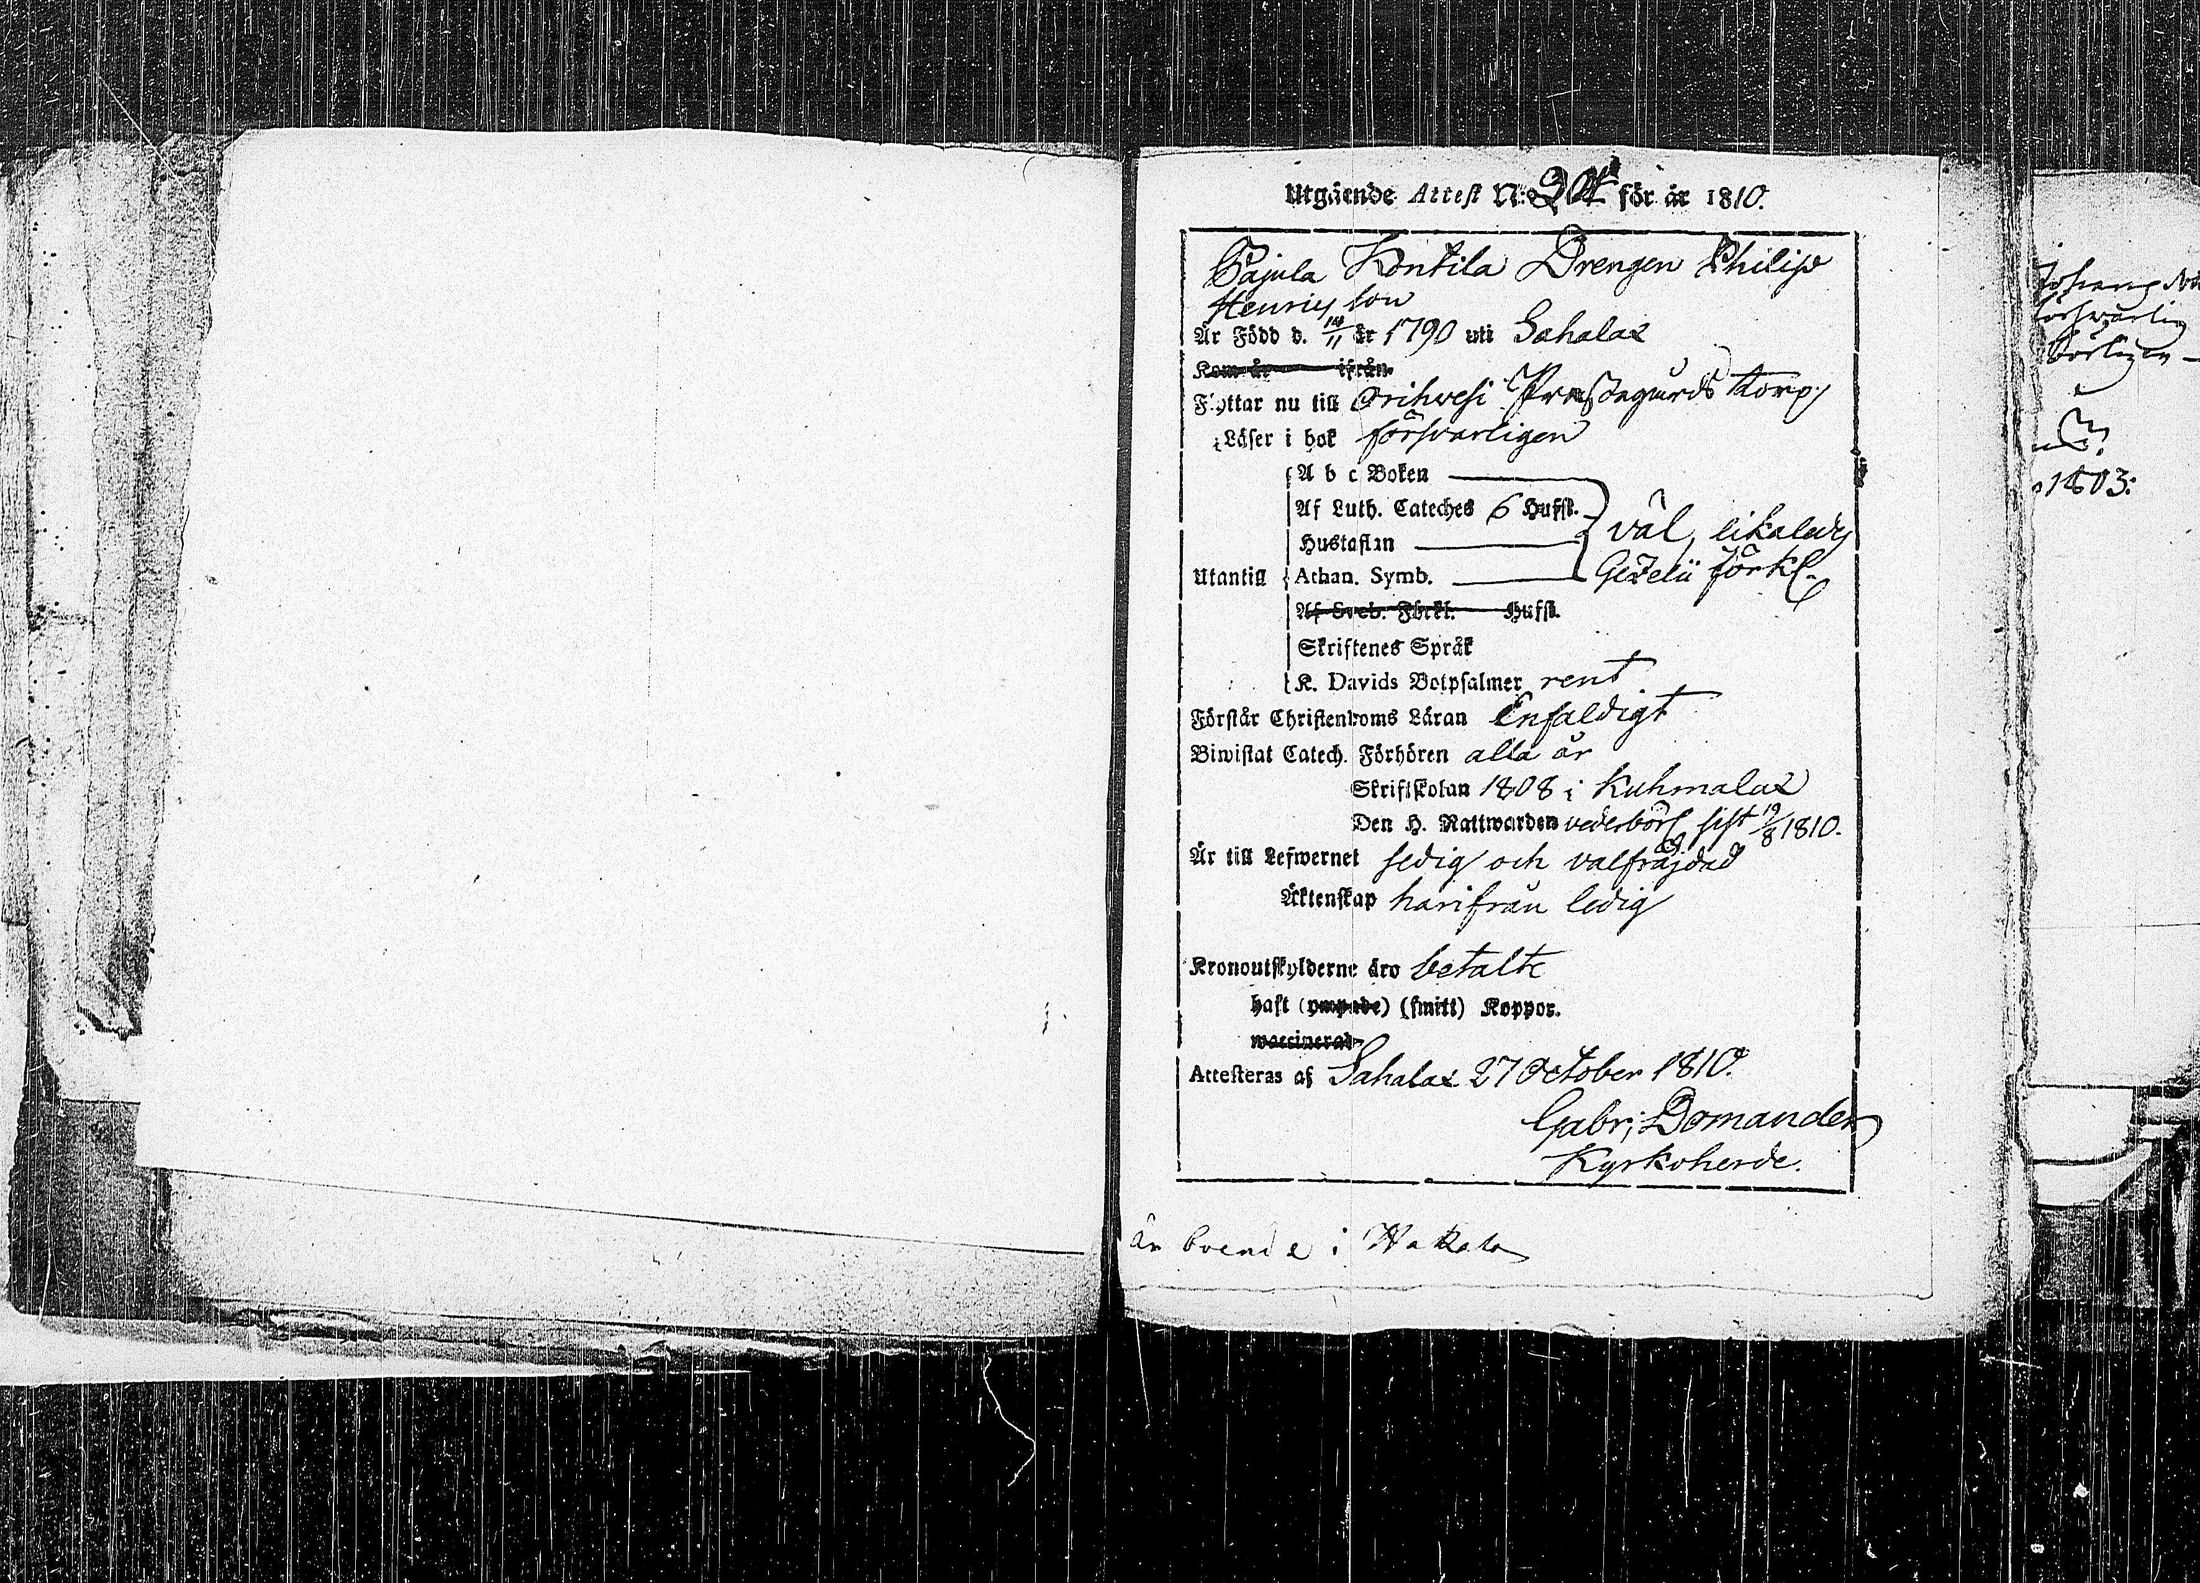 Utgående Attest N:o 24 för år 1810.
Pajula Konkila Drengen Philip
Henrics son
Är Född d. 14/11 år 1790 uti Sahalax
Kom år ifrån
Flyttar nu till Orihwesi Prestegårds torp
Läser i bok försvarligen
A b c Boken
Af Luth. Cateches 6 Hufst.
väl, likaledes
Hustaflan
Utantill Athan. Symb.
Gezelii förkl.
Af Sveb. Förkl. Hufst.
Skriftenes Språk
K. Davids Botpsalmer rent
Förstår Christendoms Läran Enfaldigt
Biwistat Catech. Förhören alla år
Skriftskolan 1808 i Kuhmalax
Den H. Nattwarden vederbörl sist 19/8 1810.
Är till Lefwernet sedig och välfräjdad
Äktenskap härifrån ledig
Kronoutskylderne äro betalte
haft (ympade) (smitt) Koppor.
waccinerad
Attesteras af Sahalax 27 October 1810.
Gabr: Domander
Kyrkoherde.
är boende i Hakala
försvarlig
1803: